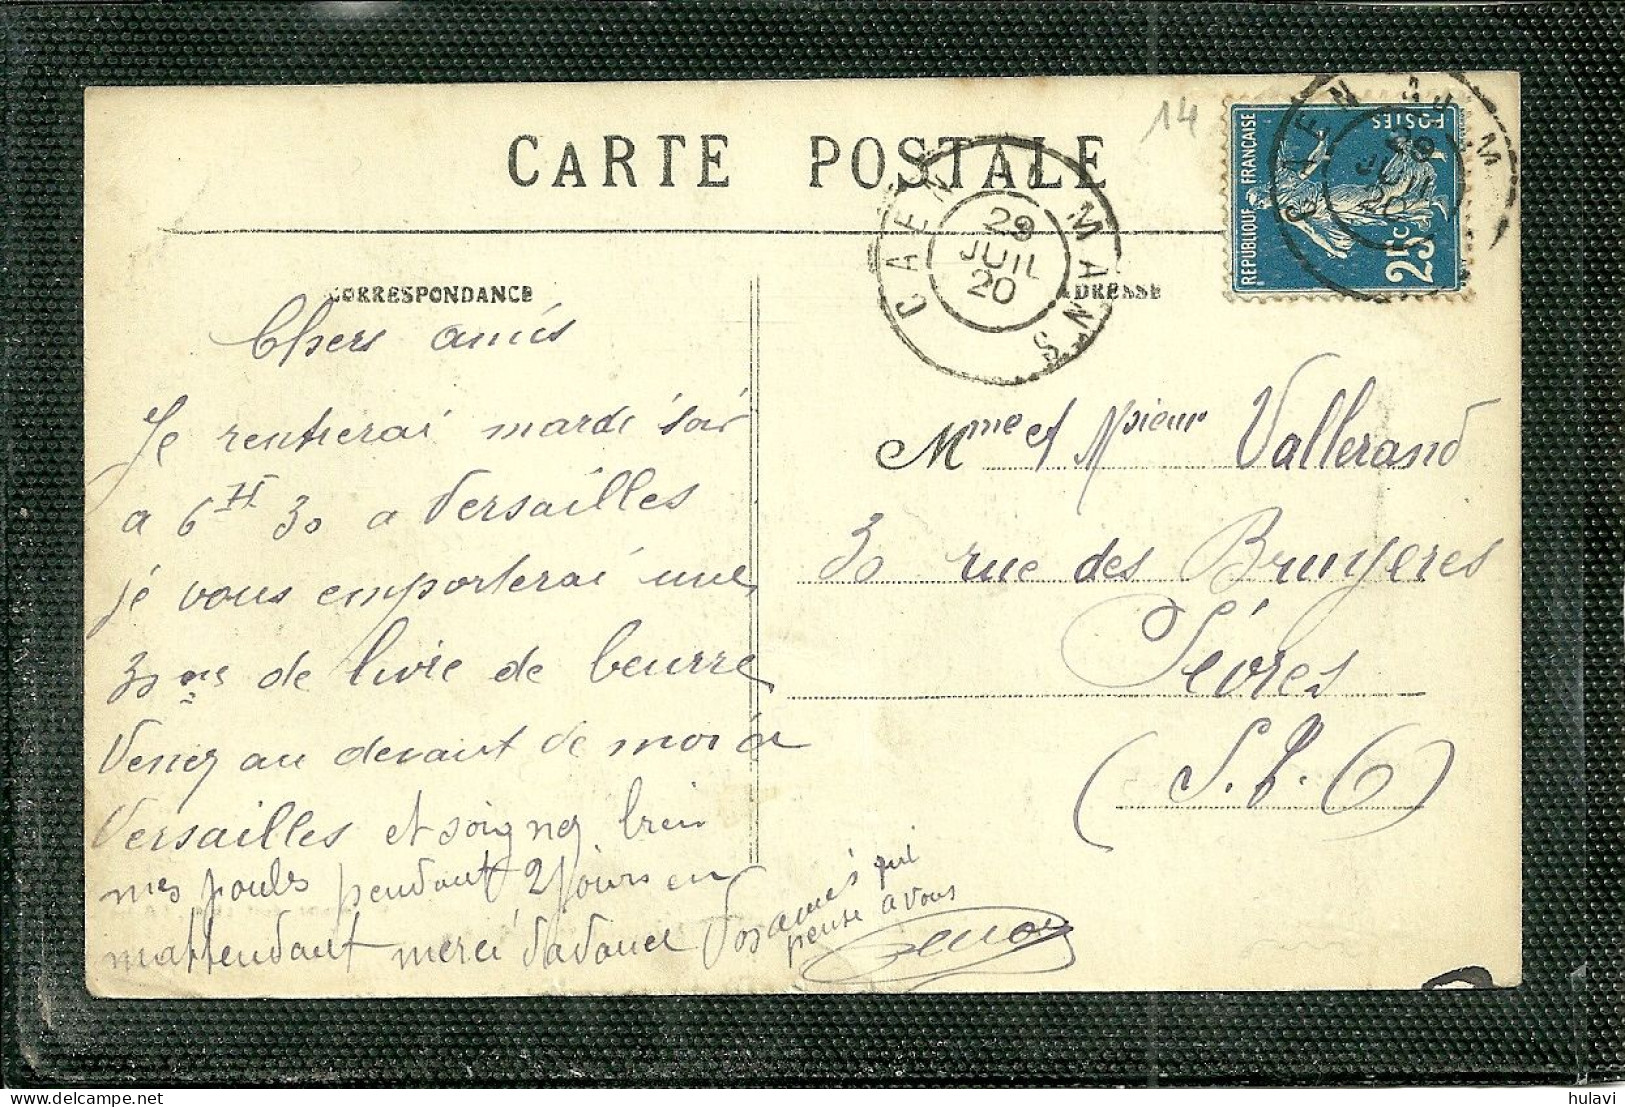 14
CARTE POSTALE
CAEN AU MANS
29
JUIL
20
CAEN AU M
29
JUIL
20
REPUBLIQUE FRANÇAISE
POSTES
25c
CORRESPONDANCE
ADRESSE
Chers amis
Je rentrerai mardi soir
a 6 H 30 a Versailles
je vous emporterai une
30 ne de livre de beurre
Venez au devant de moi a
Versailles et soignez bien
mes poules pendant 2 jours en
mattendant merci d'avance Vos
amis qui
pense a vous
Mme et Msieur Vallerand
30 rue des Bruyeres
Sèvres
(S. &. O)
hulavi